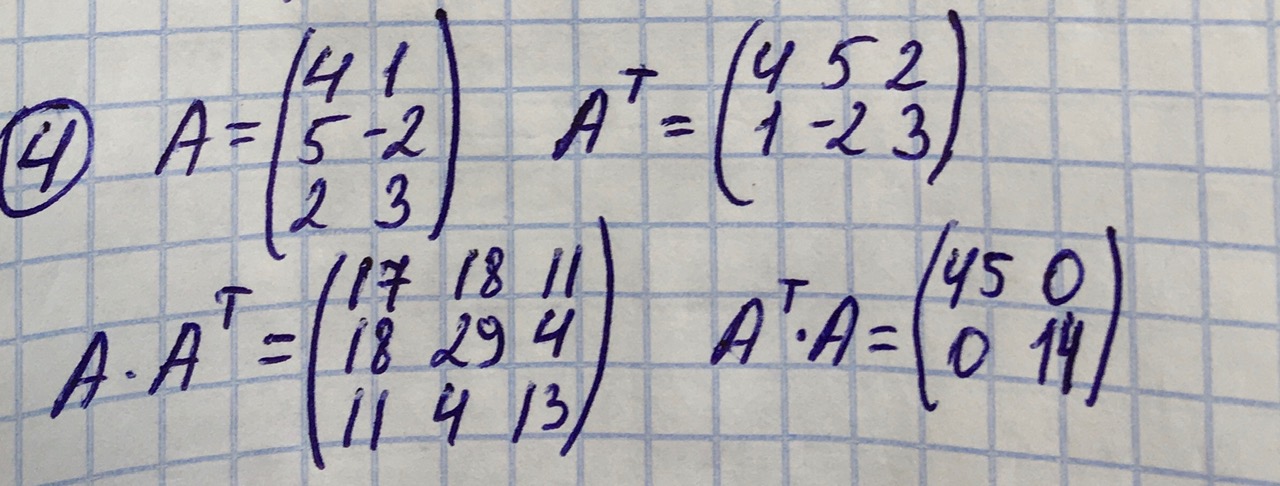 ④ A = (4 1; 5 -2; 2 3) Aᵀ = (4 5 2; 1 -2 3)
A · Aᵀ = (17 18 11; 18 29 4; 11 4 13) Aᵀ · A = (45 0; 0 14)